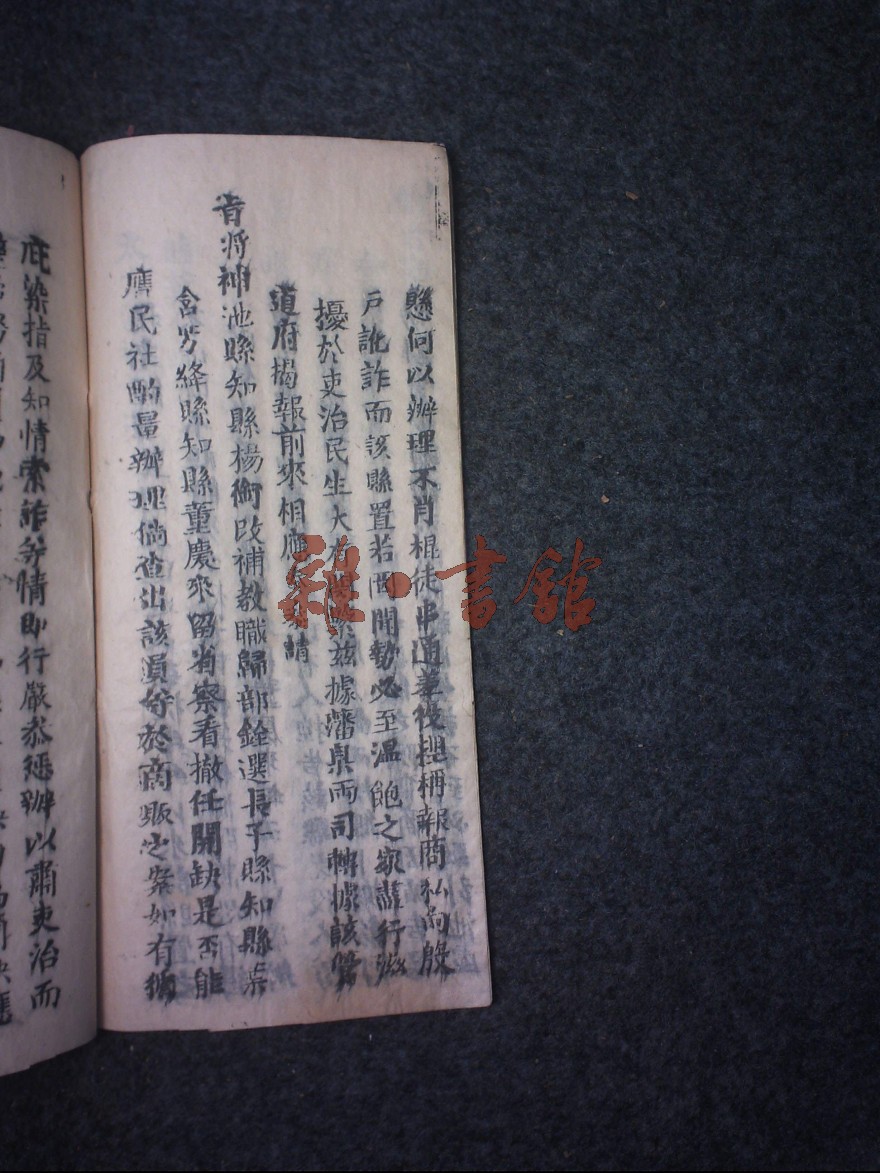 懸何以辦理不肖棍徒串通差役捏稱報商私向殷
戶訛詐而該縣置若罔聞勢必至溫飽之家盡行滋
擾於吏治民生大有關係茲據藩臬兩司轉據該管
道府揭報前來相應請
旨將神池縣知縣楊衡改補教職歸部銓選長子縣知縣葉
含芳絳縣知縣董慶來留省察看撤任開缺是否能
膺民社酌量辦理倘查出該員等於商販之案如有徇
庇染指及知情索詐等情即行嚴叅懲辦以肅吏治而
雜·書館